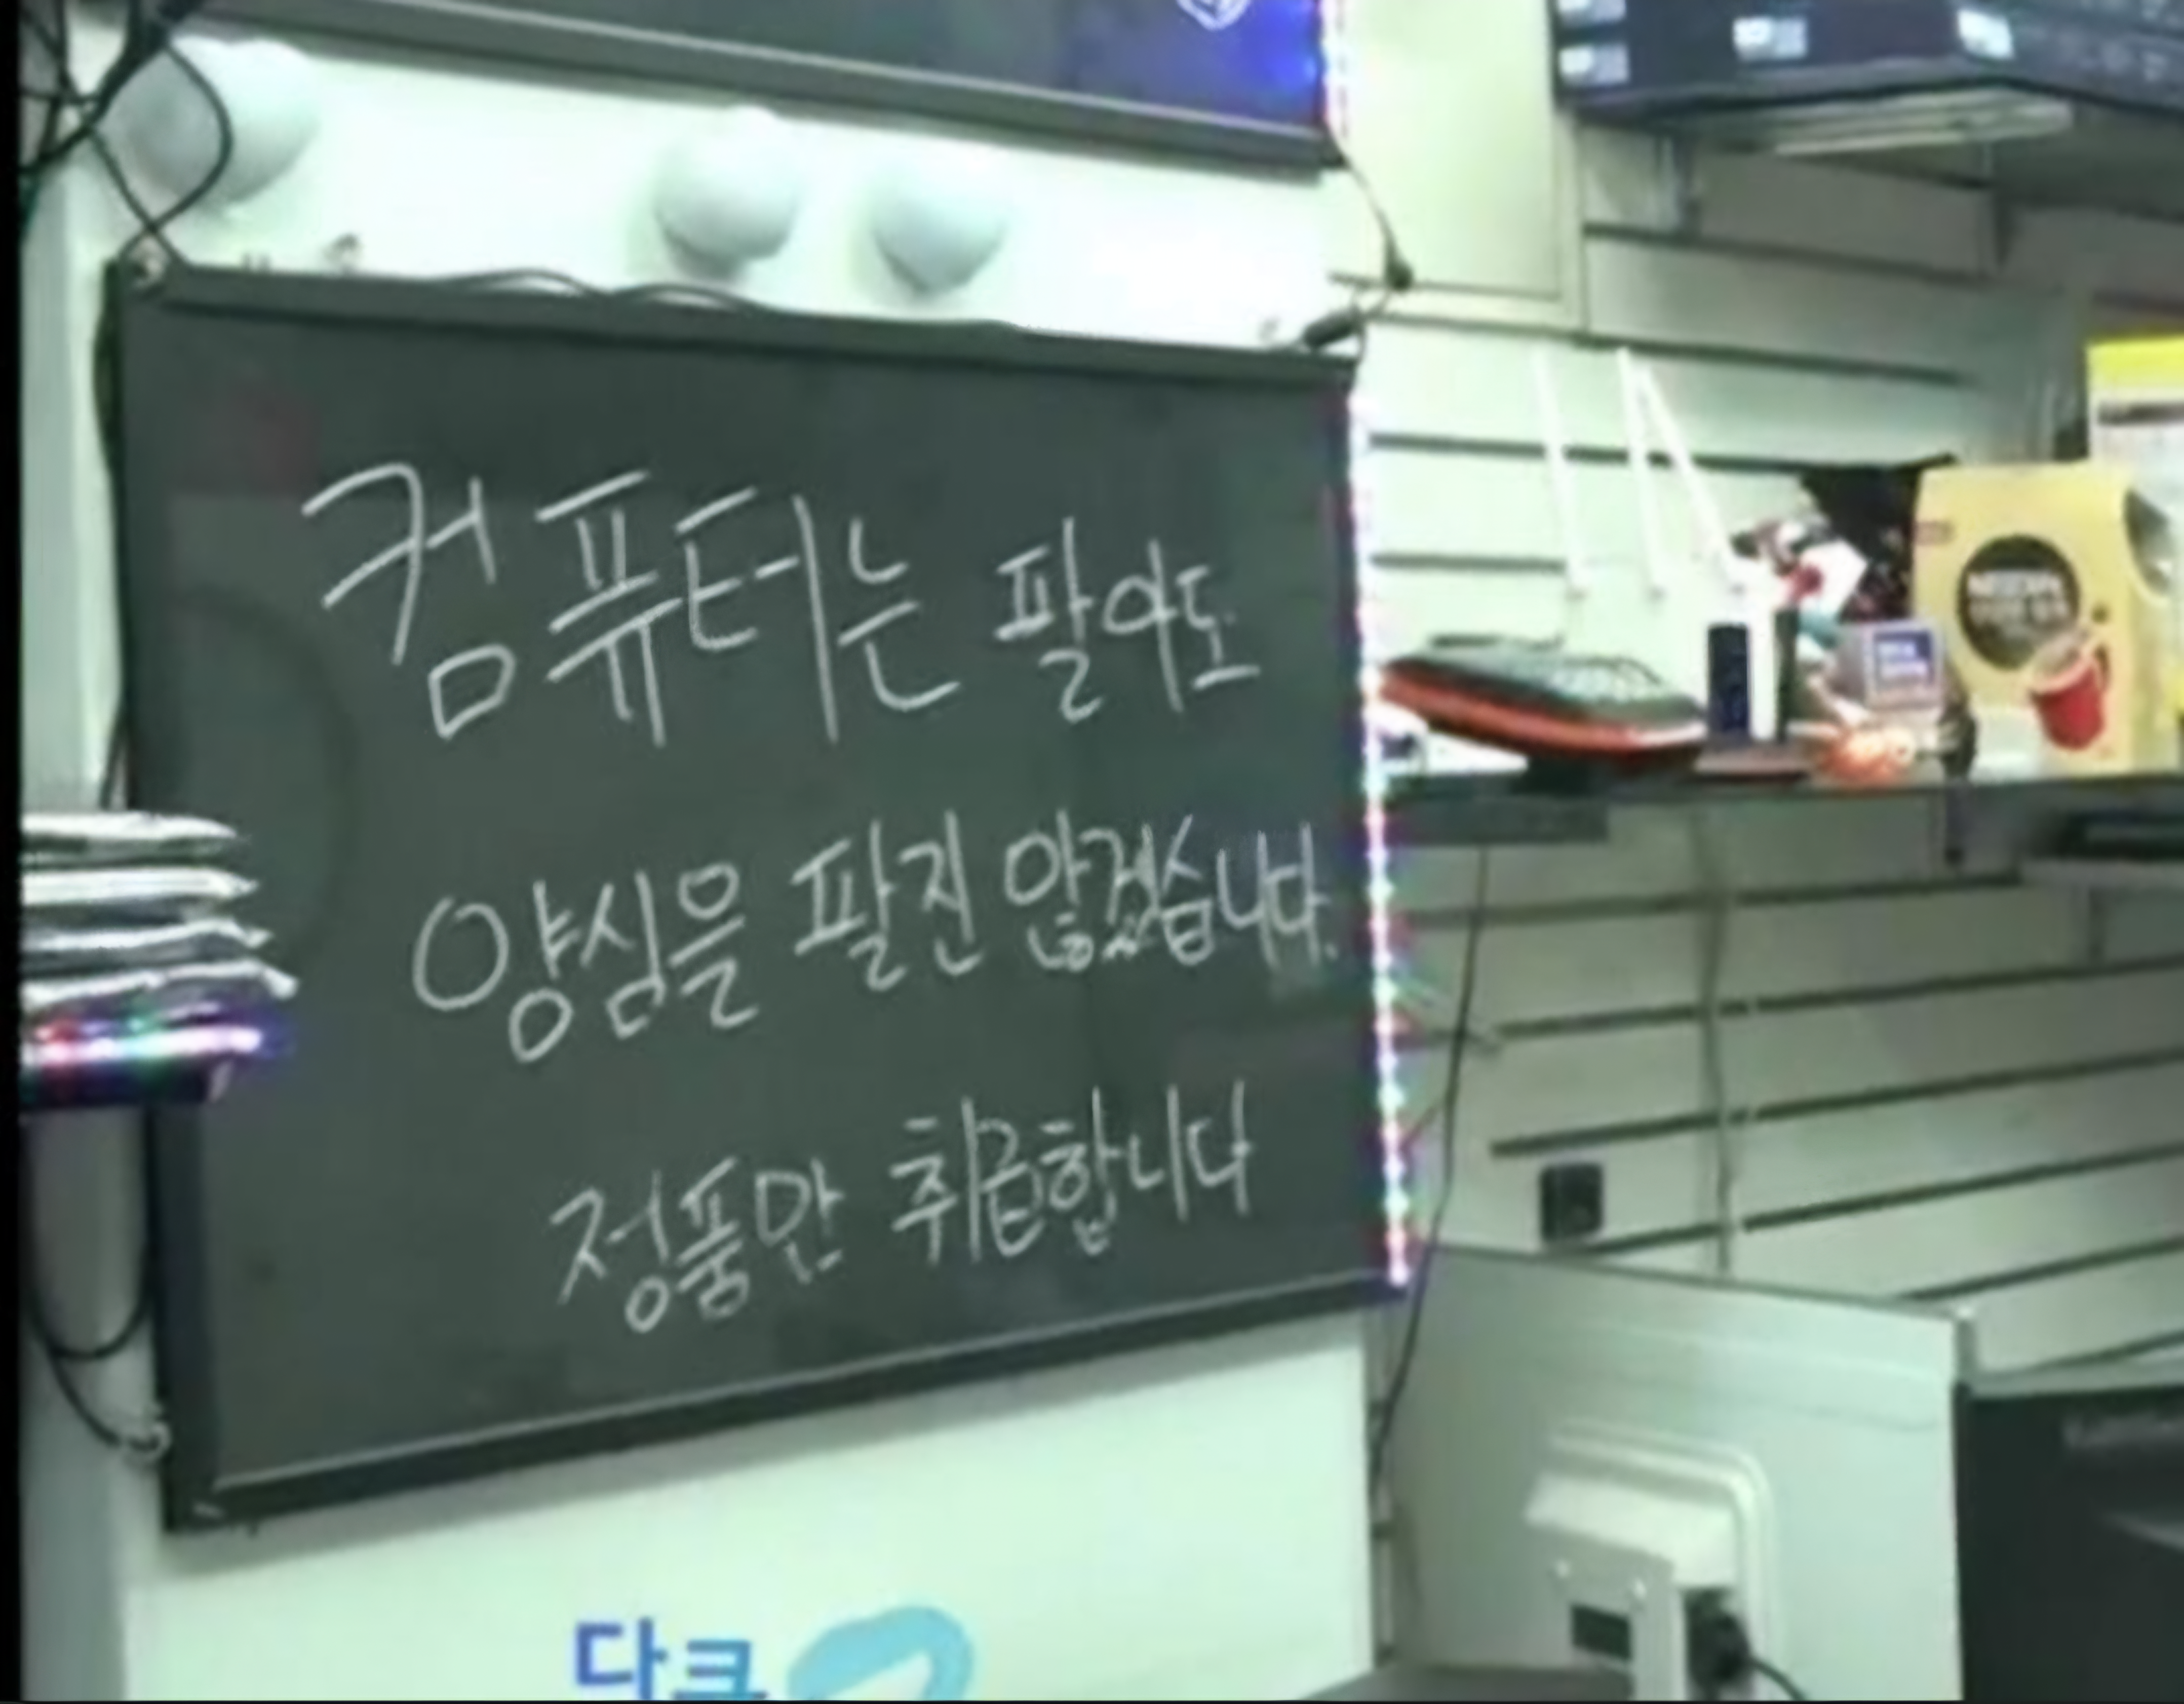 컴퓨터는 팔아도
양심을 팔진 않겠습니다.
정품만 취급합니다
NESCAFE
다큐